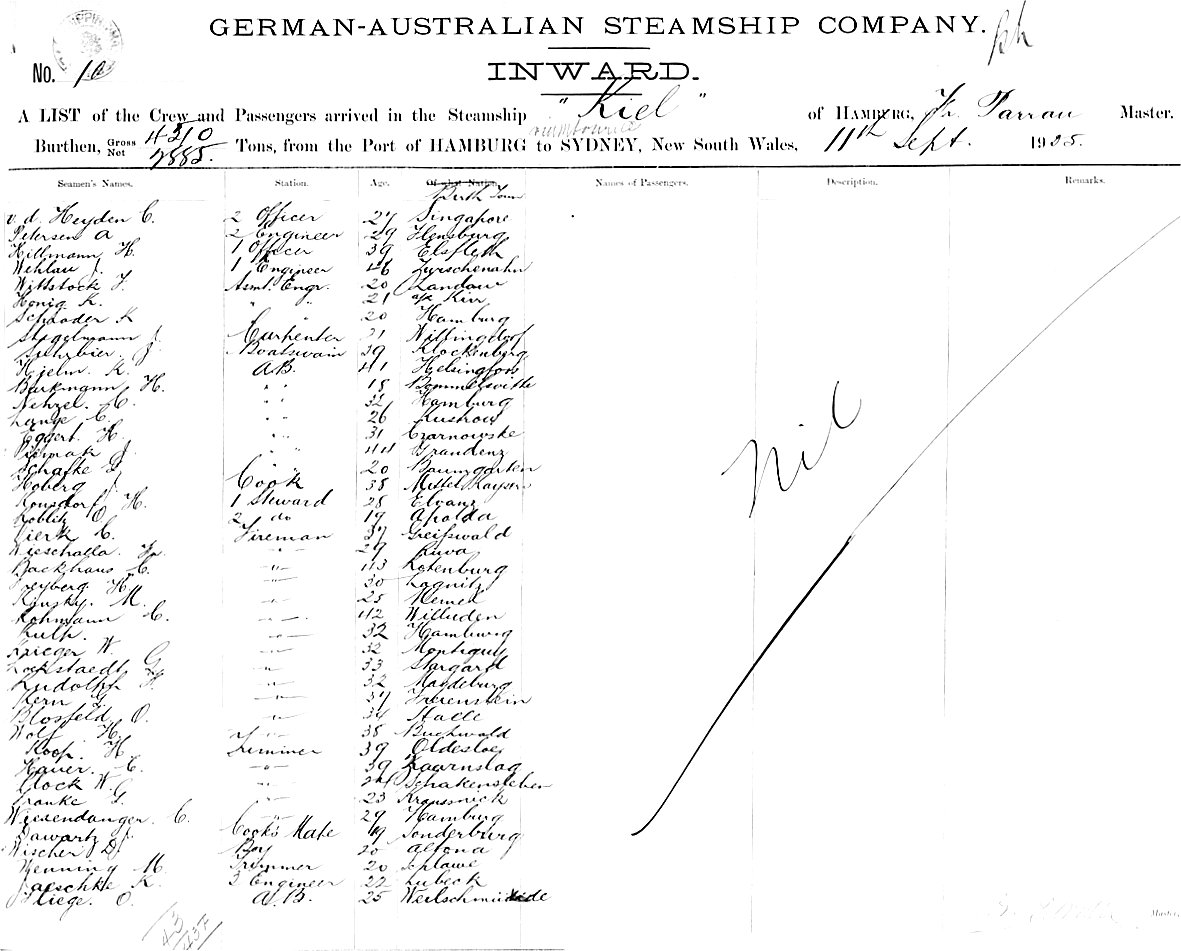 GERMAN-AUSTRALIAN STEAMSHIP COMPANY.
No. 10
INWARD.
A LIST of the Crew and Passengers arrived in the Steamship "Kiel" of HAMBURG, Fr. Parrau Master.
Burthen, Gross 4310 Net 2885. Tons, from the Port of HAMBURG to SYDNEY, New South Wales, 11th Sept. 1905.
Seamen's Names. Station. Age. Of what Nation. Names of Passengers. Description. Remarks.
Birth Town
v. d. Heyden C. 2 Officer 27 Singapore
Petersen A 2 Engineer 29 Flensburg
Hillmann H. 1 Officer 39 Elsfleth
Wehlau J. 1 Engineer 46
Wittstock F. Asmt. Engr. 20 Landau
Honig K. " " 21 a/k Kirr
Schrader K " " 20 Hamburg
Stegelmann J. Carpenter 21 Wittingdorf
Suhrbier. J. Boatswain 39 Klockenberg
Hjelm. K. A.B. 41 Helsingfors
Barkmann H. " " 18 Bommelsvitte
Nehzel. C. " " 32 Hamburg
Lange C. " " 26
Eggert H. " " 31 Czarnowske
J. " " 44 Graudenz
Schafke G " " 20 Baumgarten
Hoberg J. Cook 38 Mittel
Ronsdorf H. 1 Steward 28
Koblitz O. 2 do 19 Apolda
Vierk C. Fireman 37 Greifswald
Wieschalla. Fr. " 29
Backhaus C. " 43 Rotenburg
Freyberg. H. " 30 Lagnitz
Kinsky. M. " 25 Memel
Rohmann C. " 42 Willuden
" 32 Hamburg
Krieger W. " 32 Montigny
Lockstaedt G. " 33 Stargard
Rudolph F. " 32 Magdeburg
Kern G. " 37
Blosfeld O. " 34 Halle
Wolf H. " 38 Buchwald
Koop. H. Trimmer 39 Oldesloe
Hauer. C. " 39
Clock W. " 24 Schakensleben
Franke G. " 23
Wiesendanger. C. " 29 Hamburg
Dawartz J. Cook's Mate 19 Sonderburg
Wischer D. Boy 20 Altona
Henning M. Trimmer 20 Schlawe
Jaeschke K. 3 Engineer 22 Lubeck
Fliege. O. A.B. 25
Nil
43
Master.